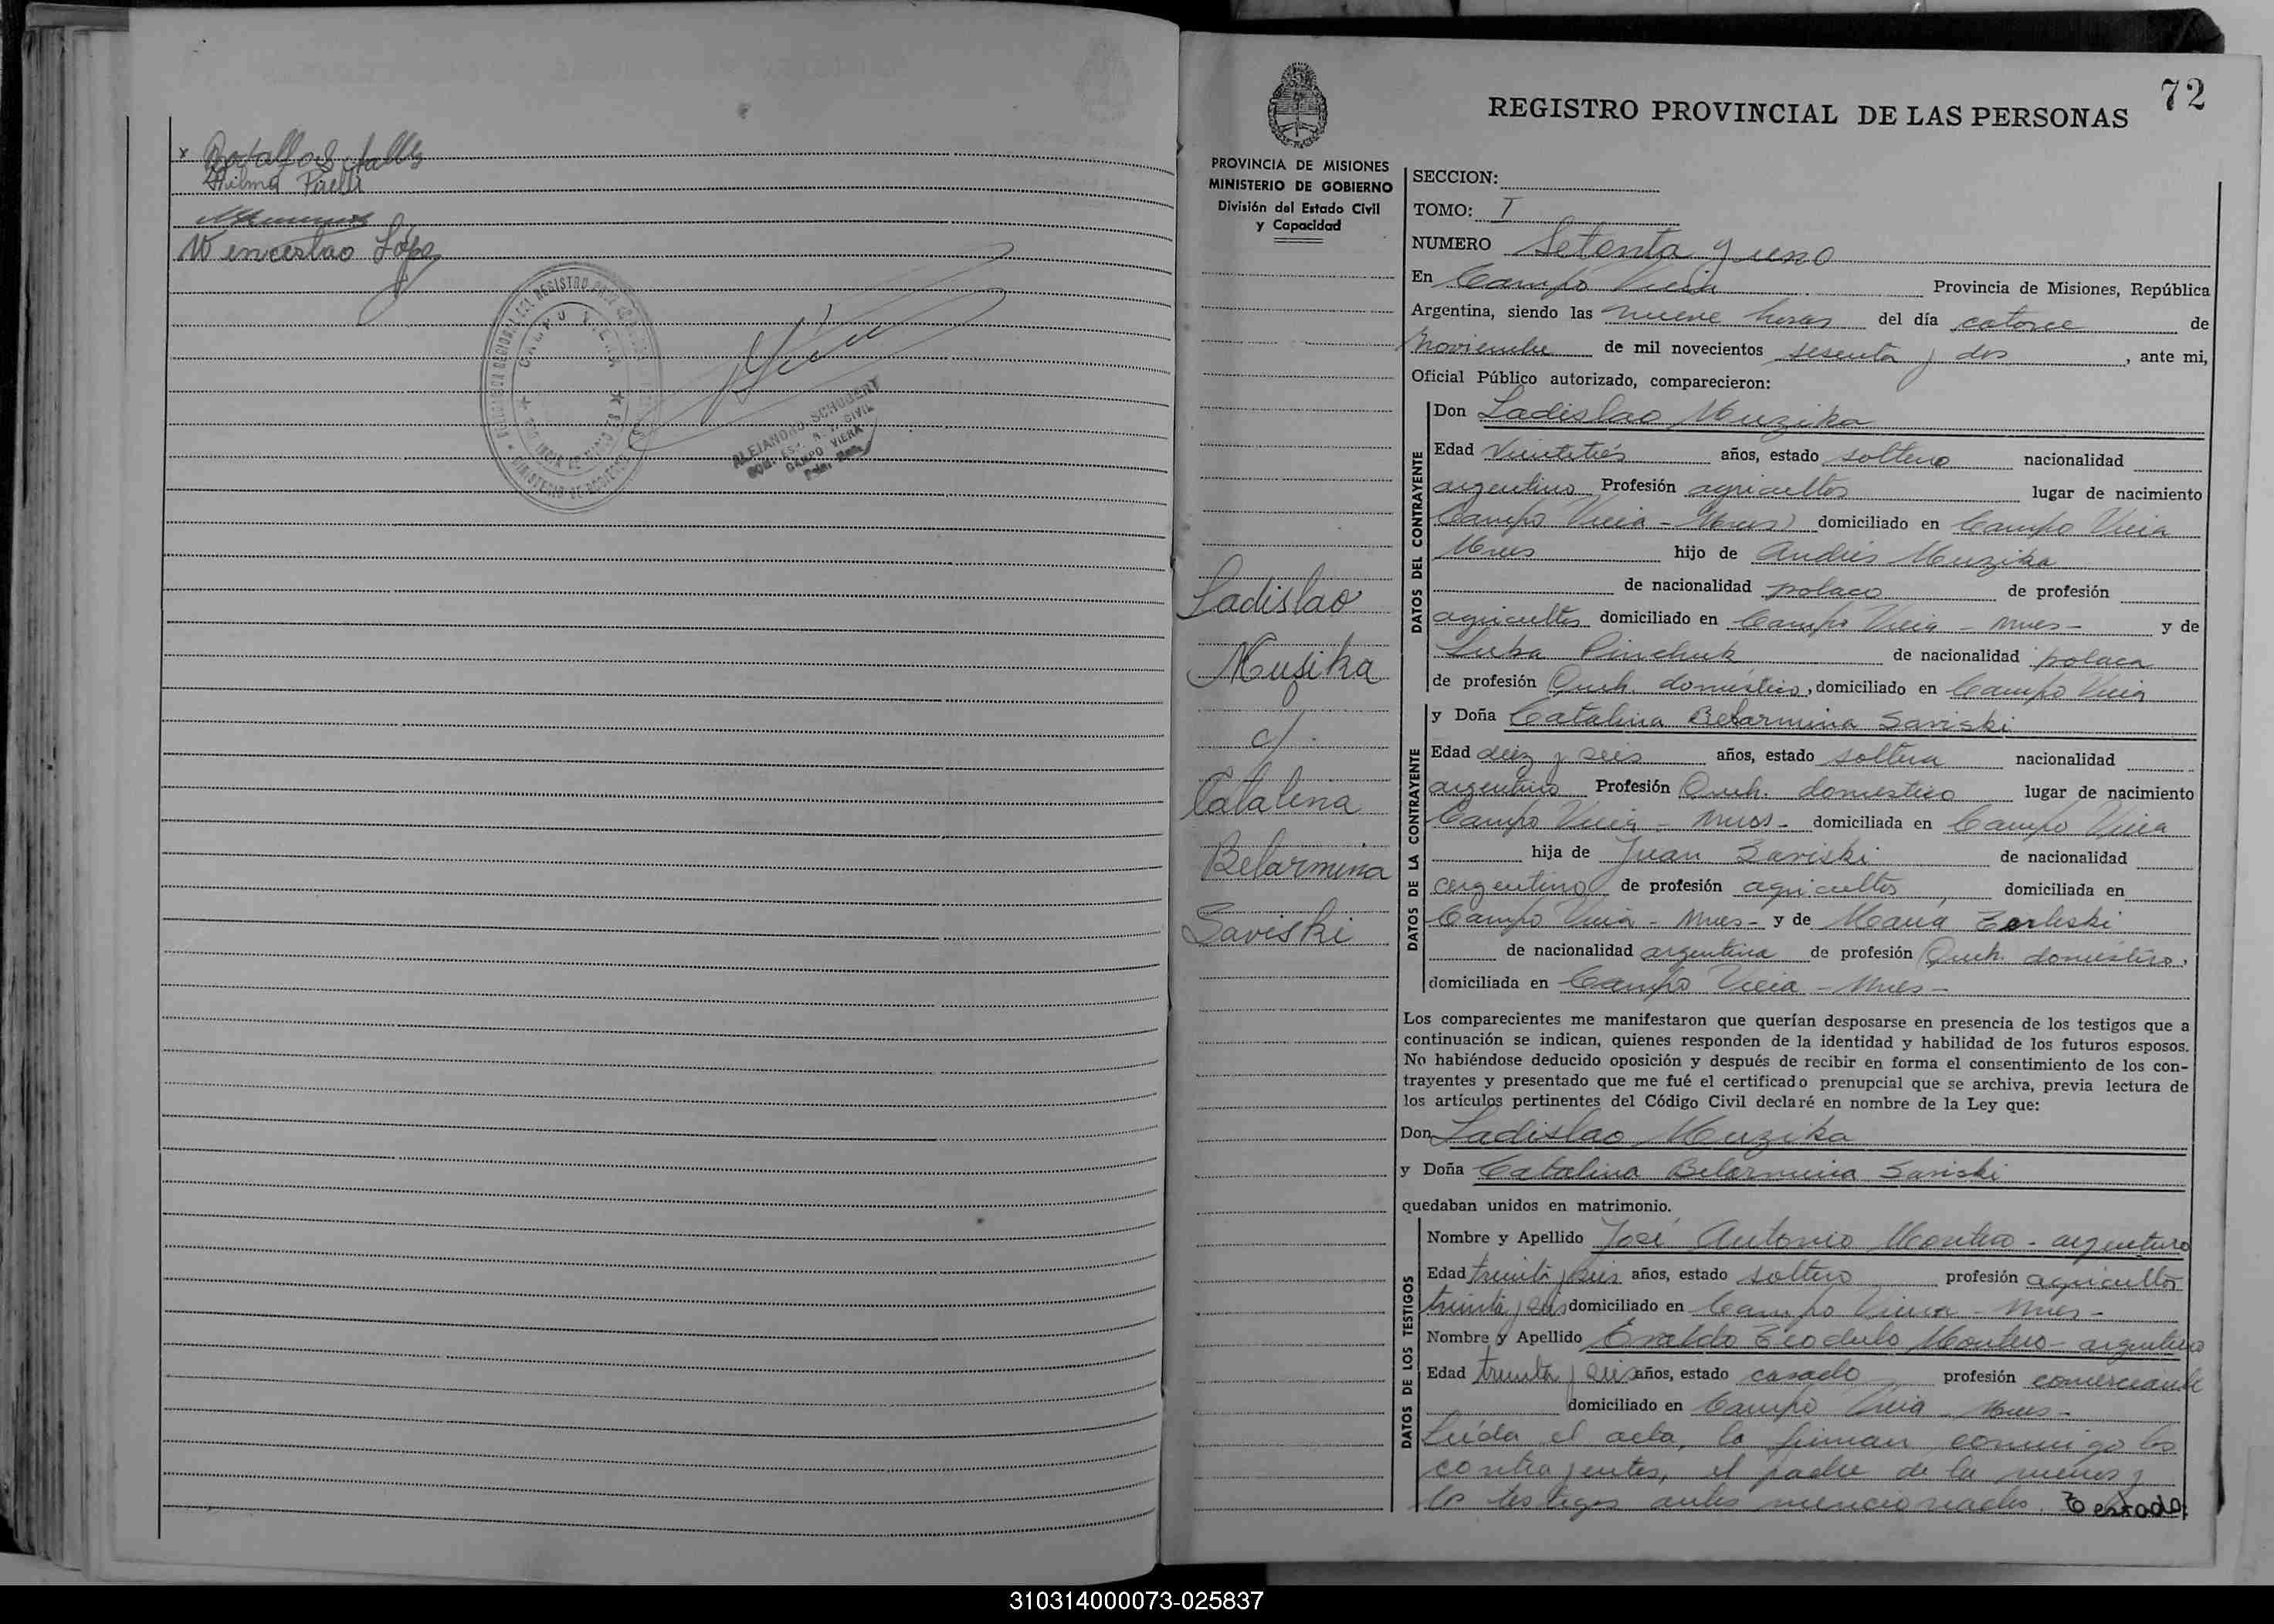 Wilma Pirelli
Wencestao López
CAMPO VIERA
ALEJANDRO SCHUBERT
CAMPO VIERA
72
REGISTRO PROVINCIAL DE LAS PERSONAS
PROVINCIA DE MISIONES
MINISTERIO DE GOBIERNO
División del Estado Civil
y Capacidad
SECCION:
TOMO: I
NUMERO Setenta y uno
En Campo Viera Provincia de Misiones, República
Argentina, siendo las nueve horas del día catorce de
Noviembre de mil novecientos sesenta y dos, ante mi,
Oficial Público autorizado, comparecieron:
DATOS DEL CONTRAYENTE
Don Ladislao Muzika
Edad Veintitrés años, estado soltero nacionalidad
argentino Profesión agricultor lugar de nacimiento
Campo Viera - Mnes) domiciliado en Campo Viera
Mnes hijo de Andrés Muzika
de nacionalidad polaco de profesión
agricultor domiciliado en Campo Viera - Mnes - y de
Luba Pinchuk de nacionalidad polaca
de profesión Queh. doméstico, domiciliado en Campo Viera
Ladislao
Musika
c/
Catalina
Belarmina
Saviski
DATOS DE LA CONTRAYENTE
y Doña Catalina Belarmina Saviski
Edad diez y seis años, estado soltera nacionalidad
argentina Profesión Queh. doméstico lugar de nacimiento
Campo Viera - Mnes - domiciliada en Campo Viera
hija de Juan Saviski de nacionalidad
argentino de profesión agricultor domiciliada en
Campo Viera - Mnes - y de María Zarleski
de nacionalidad argentina de profesión Queh. doméstico,
domiciliada en Campo Viera - Mnes -
Los comparecientes me manifestaron que querían desposarse en presencia de los testigos que a
continuación se indican, quienes responden de la identidad y habilidad de los futuros esposos.
No habiéndose deducido oposición y después de recibir en forma el consentimiento de los con-
trayentes y presentado que me fué el certificado prenupcial que se archiva, previa lectura de
los artículos pertinentes del Código Civil declaré en nombre de la Ley que:
Don Ladislao Muzika
y Doña Catalina Belarmina Saviski
quedaban unidos en matrimonio.
DATOS DE LOS TESTIGOS
Nombre y Apellido José Antonio Montero - argentino
Edad treinta y seis años, estado soltero profesión agricultor
treinta y seis domiciliado en Campo Viera - Mnes -
Nombre y Apellido Eraldo Teodulo Montero - argentino
Edad treinta y seis años, estado casado profesión comerciante
domiciliado en Campo Viera - Mnes -
Leída el acta, la firman conmigo los
contrayentes, el padre de la menor y
los testigos antes mencionados. Testado:
310314000073-025837